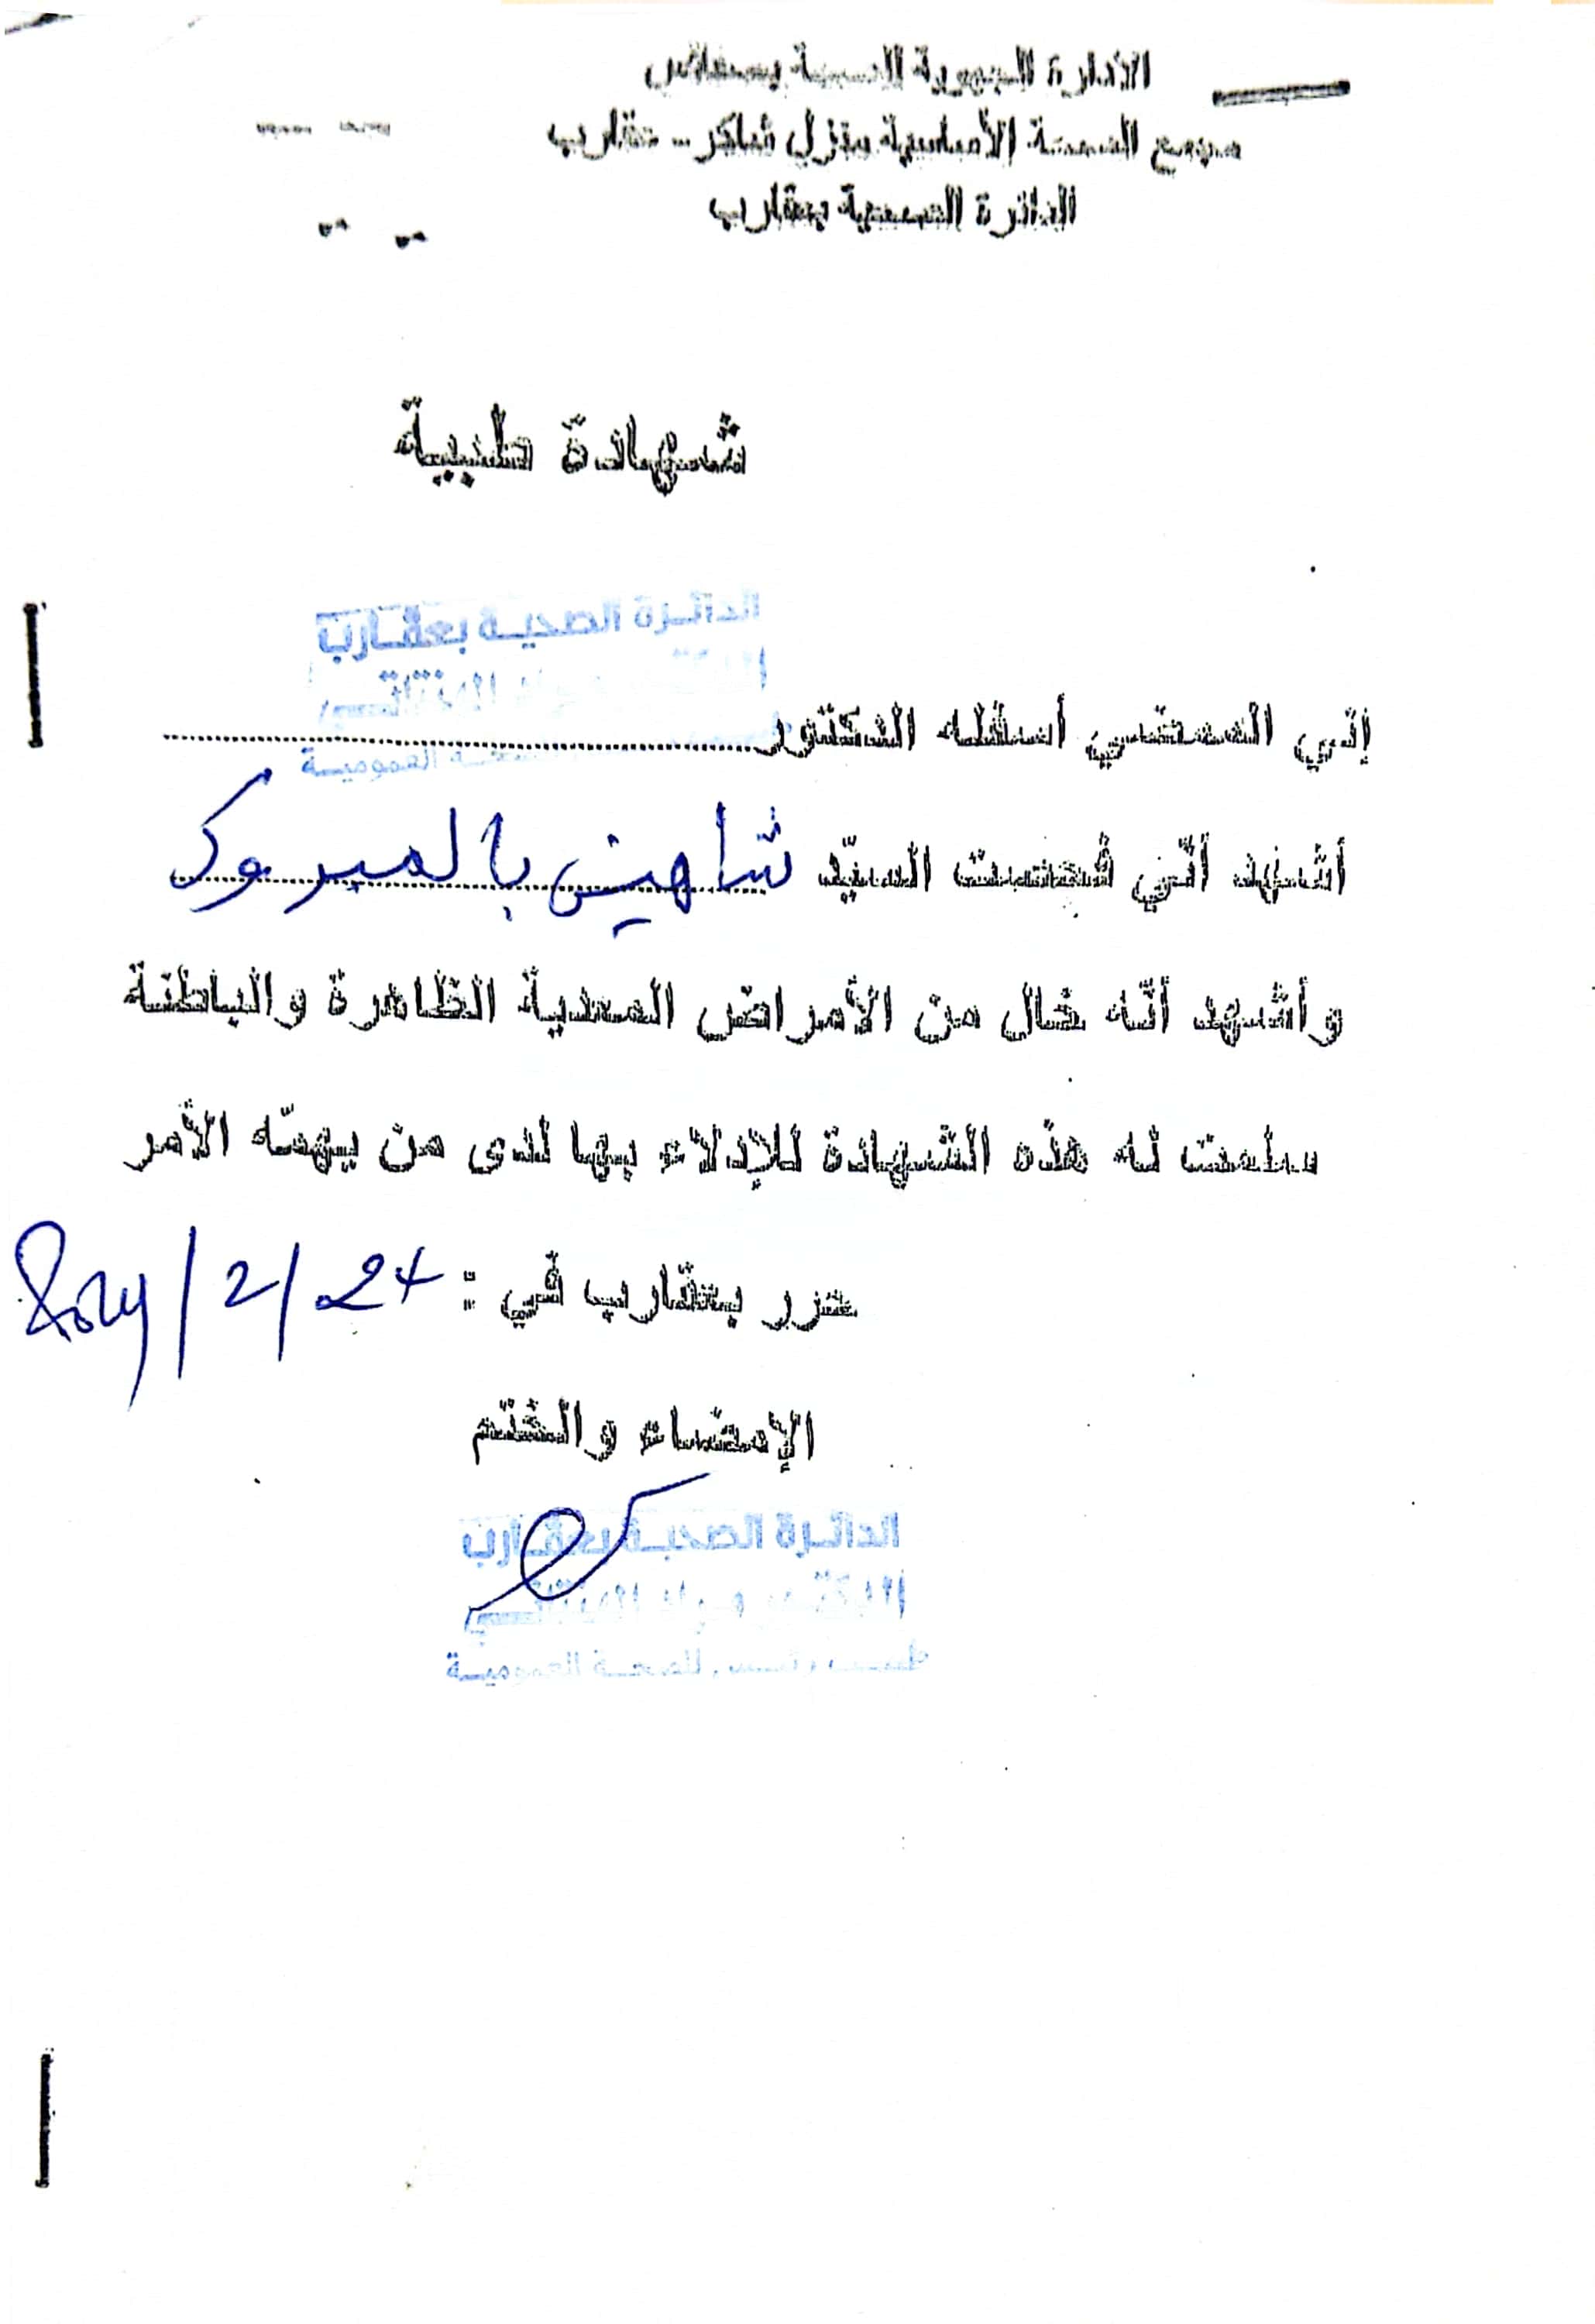 الإدارة الجهوية للصحة بصفاقس
مجمع الصحة الأساسية بمنزل شاكر - عقارب
الدائرة الصحية بعقارب
شهادة طبية
الدائرة الصحية بعقارب
العمومية
إني الممضي أسفله الدكتور
أشهد أنّي فحصت السيّد شاهين بالمبروك
وأشهد أنّه خال من الأمراض المعدية الظاهرة والباطنة
سلمت له هذه الشهادة للإدلاء بها لدى من يهمّه الأمر
حرر بعقارب في : 2024/2/
الإمضاء والختم
الدائرة الصحية بعقارب
للصحة العمومية